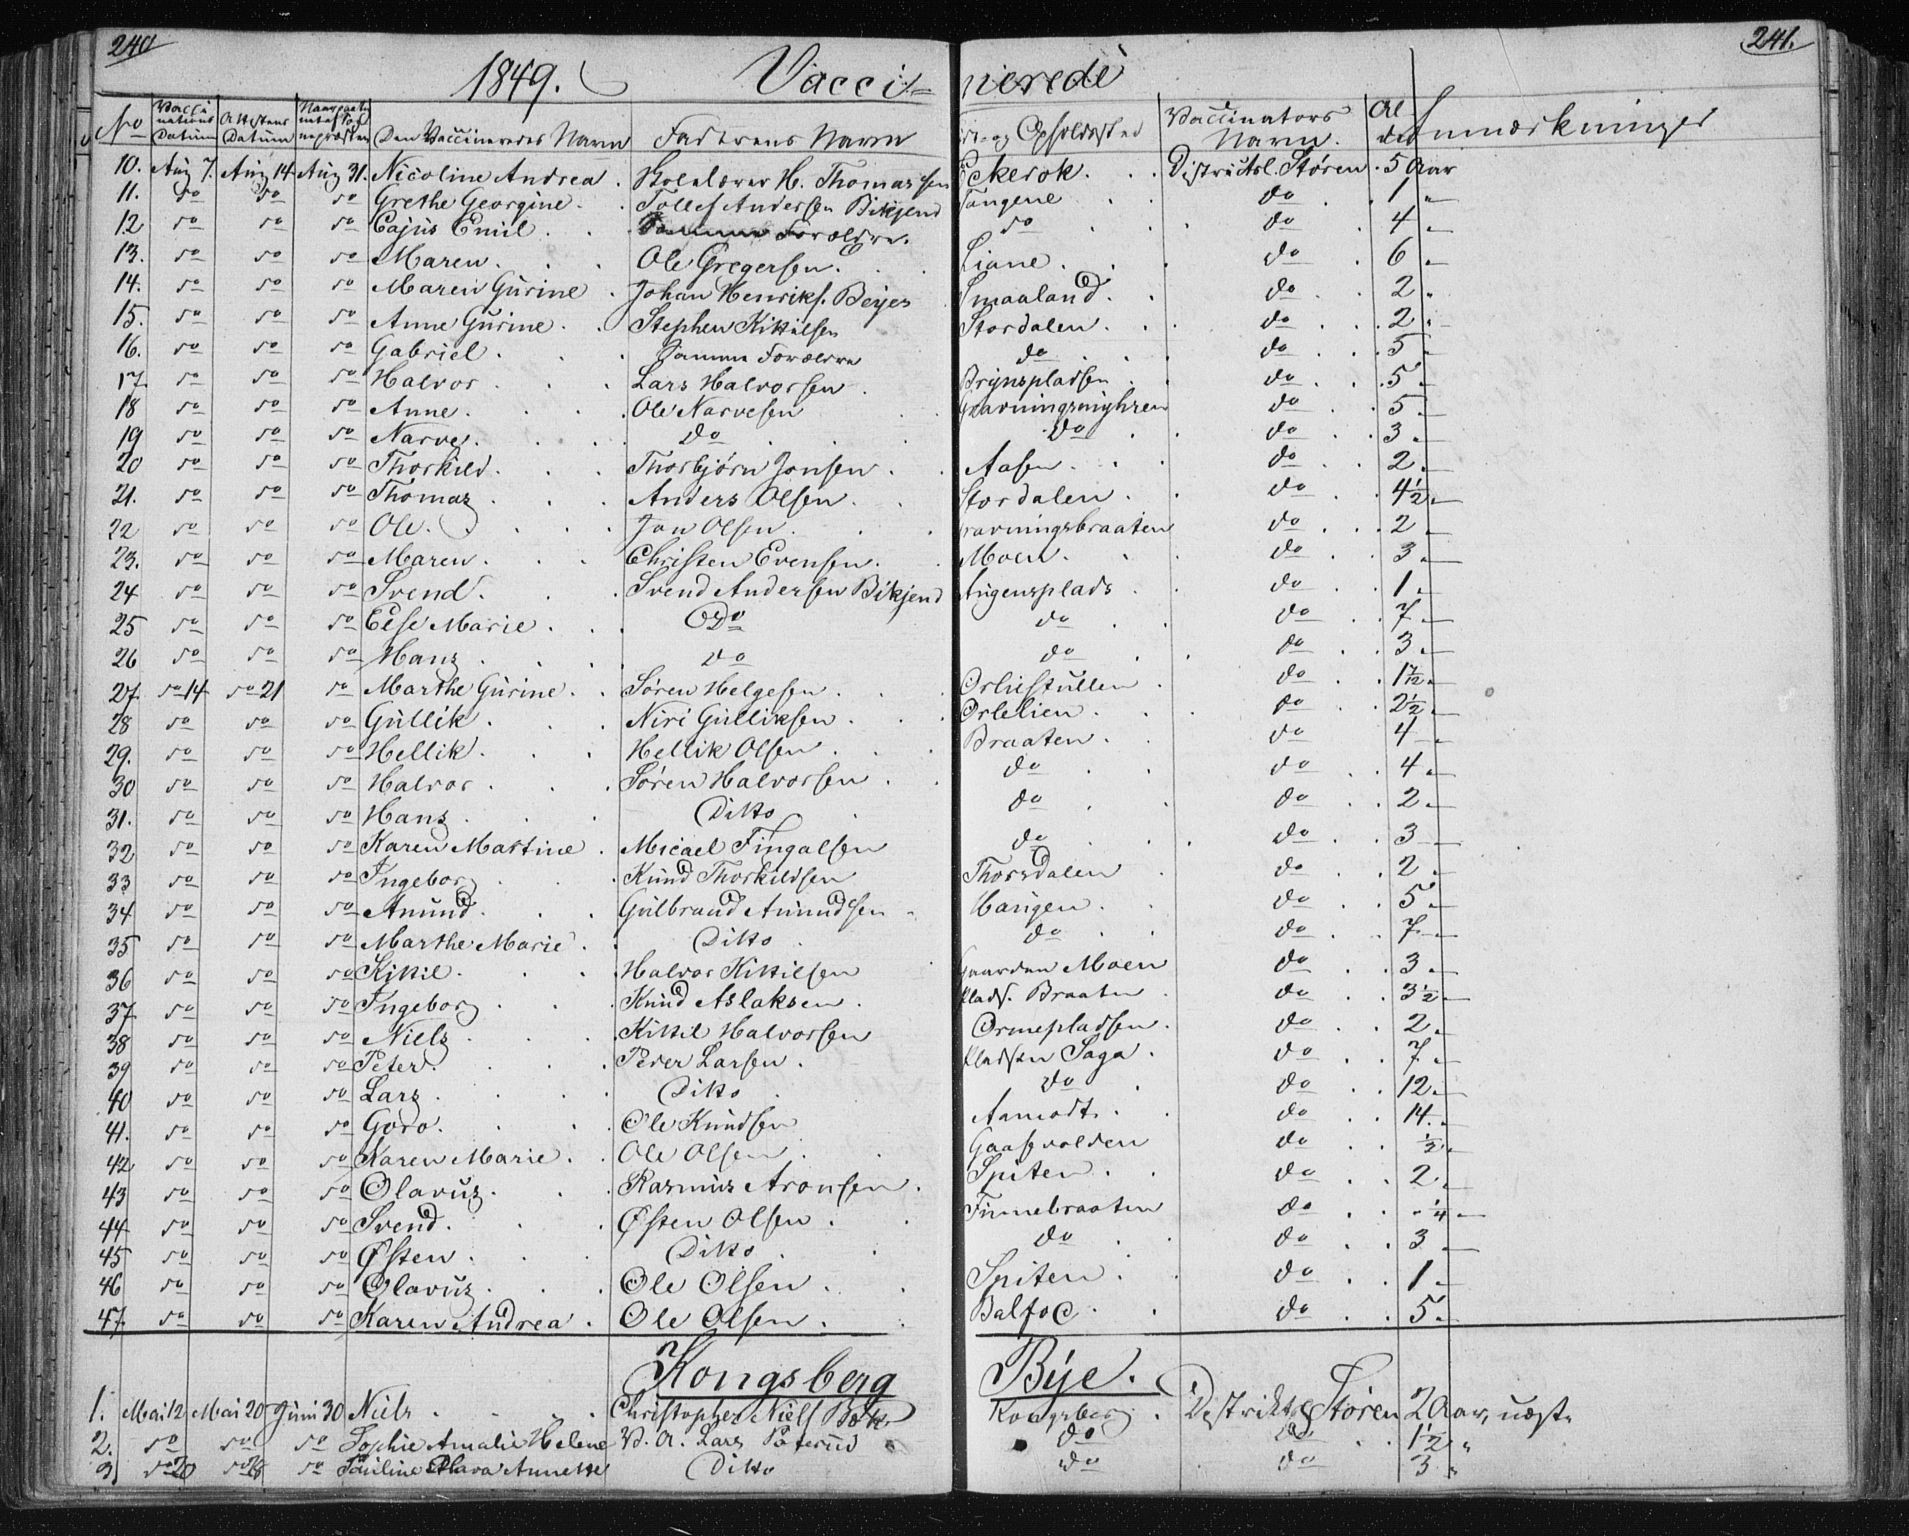 240 241.
1849. Vaccinerede
No Vaccinations Datum Attestens Datum Den Vaccineredes Navn Fadrens Navn Opholdssted Vaccinators Navn. Alder Anmærkninger
10. Aug 7. Aug 14 Aug 31. Nicoline Andrea. Skolelærer H. Thomassen Eckerok. Districtsl. Støren. 5 Aar
11. do do do Grethe Georgine. Tollef Andersen Bikjend Tangene do 1 "
12 do do do Cajus Emil. Samme Forældre. do do 4 "
13. do do do Maren. Ole Gregersen. Liane. do 6 "
14. do do do Maren Gurine. Johan Henriks. Beyer Smaaland. do 2 "
15. do do do Anne Gurine. Stephen Kittilsen Stordalen. do 2 "
16. do do do Gabriel. Samme Forældre do do 5 "
17. do do do Halvor. Lars Halvorsen Brynspladsen do 5 "
18 do do do Anne. Ole Narvesen Gravningsmyhren do 5 "
19 do do do Narve. do do do 3 "
20 do do do Thorkild. Thorbjørn Jonsen. Aasen. do 2 "
21. do do do Thomas. Anders Olsen. Stordalen. do 4½ "
22 do do do Ole. Jon Olsen. Gravningsbraaten do 2 "
23. do do do Maren. Christen Evensen. Moen. do 3 "
24 do do do Svend. Svend Andersen Bikjend Augensplads do 1 "
25 do do do Else Marie. Do do do 7 "
26 do do do Hans. do do do 3 "
27 do 14 do 21 do Marthe Gurine. Søren Helgesen. Orliestullen. do 1 7/12 "
28 do do do Gullik. Niri Gulliksen. Orlelien. do 2½ "
29. do do do Hellik. Hellik Olsen. Braaten. do 4 "
30 do do do Halvor. Søren Halvorsen. do do 4 "
31. do do do Hans. Ditto do do 2 "
32 do do do Karen Martine. Micael Fingalsen do do 3 "
33 do do do Ingeborg. Knud Thorkildsen Thorsdalen do 2 "
34 do do do Amund. Gulbrand Amundsen Haugen. do 5 "
35 do do do Marthe Marie. Ditto do do 7 "
36 do do do Kittil. Halvor Kittilsen Gaarden Moen do 3 "
37 do do do Ingeborg. Knud Aslaksen. Plads. Braaten do 3½ "
38 do do do Niels. Kittil Halvorsen Ormepladsen. do 2 "
39 do do do Peter. Peder Larsen. Pladsen Saga. do 7 "
40 do do do Lars. Ditto do do 12 "
41. do do do Goro. Ole Knudsen Aamodt. do 14 "
42 do do do Karen Marie. Ole Olsen. do ½ "
43 do do do Olavus. Rasmus Aronsen. Spiten. do 2 "
44 do do do Svend. Østen Olsen. Finnebraaten do ¼ "
45 do do do Østen. Ditto do do 3 "
46 do do do Olavus. Ole Olsen. Spiten. do 1 "
47 do do do Karen Andrea. Ole Olsen. do 5 "
Kongsberg Bye.
1. Mai 12 Mai 20 Juni 30 Niels. Christopher Niels Kongsberg. Distriktsl Støren 2 Aar, næst.
2. do do do Sophie Amalie Helene Lars do do 1½ "
3 do 20 do 28 do Pauline Olava Annette Ditto do do 3 "